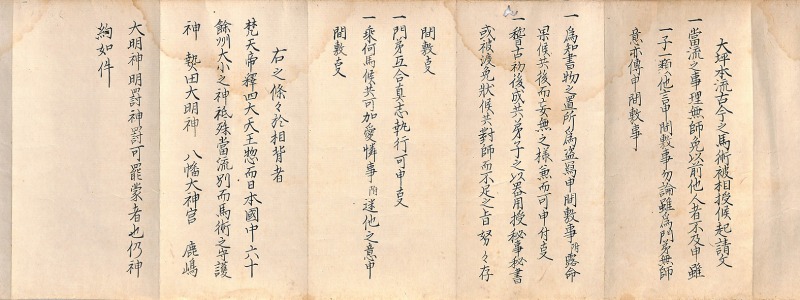 大坪本流古今之馬術被相授候起請文
一當流之事理無師免以前他人者不及申雖
一子一類他言申間敷事勿論雖為門弟無師
意亦傳申間敷事
一為知書物之置所為盗寫申間敷事附露命
果候共後而妄無之様兼而可申付事
一稽古劫後成共弟子之以器用授秘事秘書
或被渡免状候共對師而不足之旨努々存
間敷事
一門弟互合真忠執行可申事
一乗何馬候共可加愛憐事附迷他之意申
間敷事
右之條々於相背者
梵天帝釋四大天王惣而日本國中六十
餘州大小之神祇殊當流別而馬術之守護
神 熱田大明神 八幡大神宮 鹿嶋
大明神明罸神罸可罷蒙者也仍神
絢如件